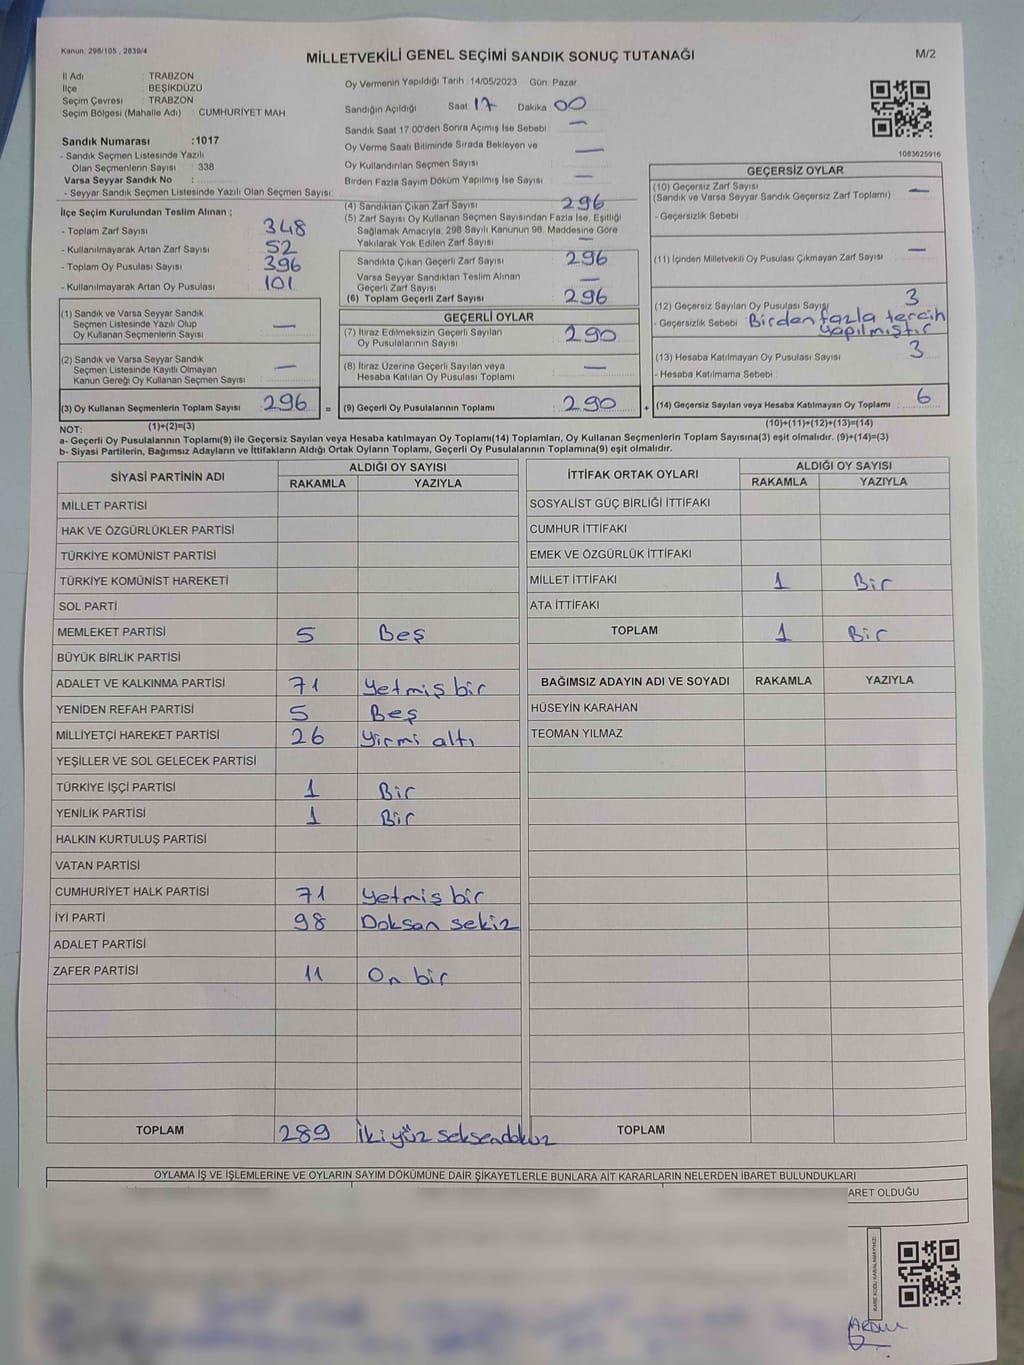 Kanun: 298/105 , 2839/4
MİLLETVEKİLİ GENEL SEÇİMİ SANDIK SONUÇ TUTANAĞI
M/2
İl Adı : TRABZON
İlçe : BEŞİKDÜZÜ
Seçim Çevresi : TRABZON
Seçim Bölgesi (Mahalle Adı) : CUMHURİYET MAH
Sandık Numarası :1017
- Sandık Seçmen Listesinde Yazılı
Olan Seçmenlerin Sayısı : 338
Varsa Seyyar Sandık No :
- Seyyar Sandık Seçmen Listesinde Yazılı Olan Seçmen Sayısı:
İlçe Seçim Kurulundan Teslim Alınan ;
- Toplam Zarf Sayısı 348
- Kullanılmayarak Artan Zarf Sayısı 52
- Toplam Oy Pusulası Sayısı 396
- Kullanılmayarak Artan Oy Pusulası 101
(1) Sandık ve Varsa Seyyar Sandık
Seçmen Listesinde Yazılı Olup
Oy Kullanan Seçmenlerin Sayısı —
(2) Sandık ve Varsa Seyyar Sandık
Seçmen Listesinde Kayıtlı Olmayan
Kanun Gereği Oy Kullanan Seçmen Sayısı —
(3) Oy Kullanan Seçmenlerin Toplam Sayısı 296 =
Oy Vermenin Yapıldığı Tarih :14/05/2023 Gün: Pazar
Sandığın Açıldığı Saat 17 Dakika 00
Sandık Saat 17.00'den Sonra Açımış İse Sebebi : —
Oy Verme Saati Bitiminde Sırada Bekleyen ve
Oy Kullandırılan Seçmen Sayısı : —
Birden Fazla Sayım Döküm Yapılmış İse Sayısı : —
(4) Sandıktan Çıkan Zarf Sayısı 296
(5) Zarf Sayısı Oy Kullanan Seçmen Sayısından Fazla İse, Eşitliği
Sağlamak Amacıyla, 298 Sayılı Kanunun 98. Maddesine Göre
Yakılarak Yok Edilen Zarf Sayısı —
Sandıkta Çıkan Geçerli Zarf Sayısı 296
Varsa Seyyar Sandıktan Teslim Alınan
Geçerli Zarf Sayısı —
(6) Toplam Geçerli Zarf Sayısı 296
GEÇERLİ OYLAR
(7) İtiraz Edilmeksizin Geçerli Sayılan
Oy Pusulalarının Sayısı 290
(8) İtiraz Üzerine Geçerli Sayılan veya
Hesaba Katılan Oy Pusulası Toplamı —
(9) Geçerli Oy Pusulalarının Toplamı 290 +
1083625916
GEÇERSİZ OYLAR
(10) Geçersiz Zarf Sayısı
(Sandık ve Varsa Seyyar Sandık Geçersiz Zarf Toplamı) —
- Geçersizlik Sebebi
(11) İçinden Milletvekili Oy Pusulası Çıkmayan Zarf Sayısı —
(12) Geçersiz Sayılan Oy Pusulası Sayısı 3
- Geçersizlik Sebebi Birden fazla tercih
yapılmıştır
(13) Hesaba Katılmayan Oy Pusulası Sayısı 3
- Hesaba Katılmama Sebebi
(14) Geçersiz Sayılan veya Hesaba Katılmayan Oy Toplamı : 6
NOT: (1)+(2)=(3) (10)+(11)+(12)+(13)=(14)
a- Geçerli Oy Pusulalarının Toplamı(9) ile Geçersiz Sayılan veya Hesaba katılmayan Oy Toplamı(14) Toplamları, Oy Kullanan Seçmenlerin Toplam Sayısına(3) eşit olmalıdır. (9)+(14)=(3)
b- Siyasi Partilerin, Bağımsız Adayların ve İttifakların Aldığı Ortak Oyların Toplamı, Geçerli Oy Pusulalarının Toplamına(9) eşit olmalıdır.
SİYASİ PARTİNİN ADI ALDIĞI OY SAYISI
RAKAMLA YAZIYLA
MİLLET PARTİSİ
HAK VE ÖZGÜRLÜKLER PARTİSİ
TÜRKİYE KOMÜNİST PARTİSİ
TÜRKİYE KOMÜNİST HAREKETİ
SOL PARTİ
MEMLEKET PARTİSİ 5 Beş
BÜYÜK BİRLİK PARTİSİ
ADALET VE KALKINMA PARTİSİ 71 Yetmiş bir
YENİDEN REFAH PARTİSİ 5 Beş
MİLLİYETÇİ HAREKET PARTİSİ 26 Yirmi altı
YEŞİLLER VE SOL GELECEK PARTİSİ
TÜRKİYE İŞÇİ PARTİSİ 1 Bir
YENİLİK PARTİSİ 1 Bir
HALKIN KURTULUŞ PARTİSİ
VATAN PARTİSİ
CUMHURİYET HALK PARTİSİ 71 Yetmiş bir
İYİ PARTİ 98 Doksan sekiz
ADALET PARTİSİ
ZAFER PARTİSİ 11 On bir
TOPLAM 289 İki yüz seksendokuz
İTTİFAK ORTAK OYLARI ALDIĞI OY SAYISI
RAKAMLA YAZIYLA
SOSYALİST GÜÇ BİRLİĞİ İTTİFAKI
CUMHUR İTTİFAKI
EMEK VE ÖZGÜRLÜK İTTİFAKI
MİLLET İTTİFAKI 1 Bir
ATA İTTİFAKI
TOPLAM 1 Bir
BAĞIMSIZ ADAYIN ADI VE SOYADI RAKAMLA YAZIYLA
HÜSEYİN KARAHAN
TEOMAN YILMAZ
TOPLAM
OYLAMA İŞ VE İŞLEMLERİNE VE OYLARIN SAYIM DÖKÜMÜNE DAİR ŞİKAYETLERLE BUNLARA AİT KARARLARIN NELERDEN İBARET BULUNDUKLARI
ARET OLDUĞU
KARE KODU KARALAMAYINIZ!